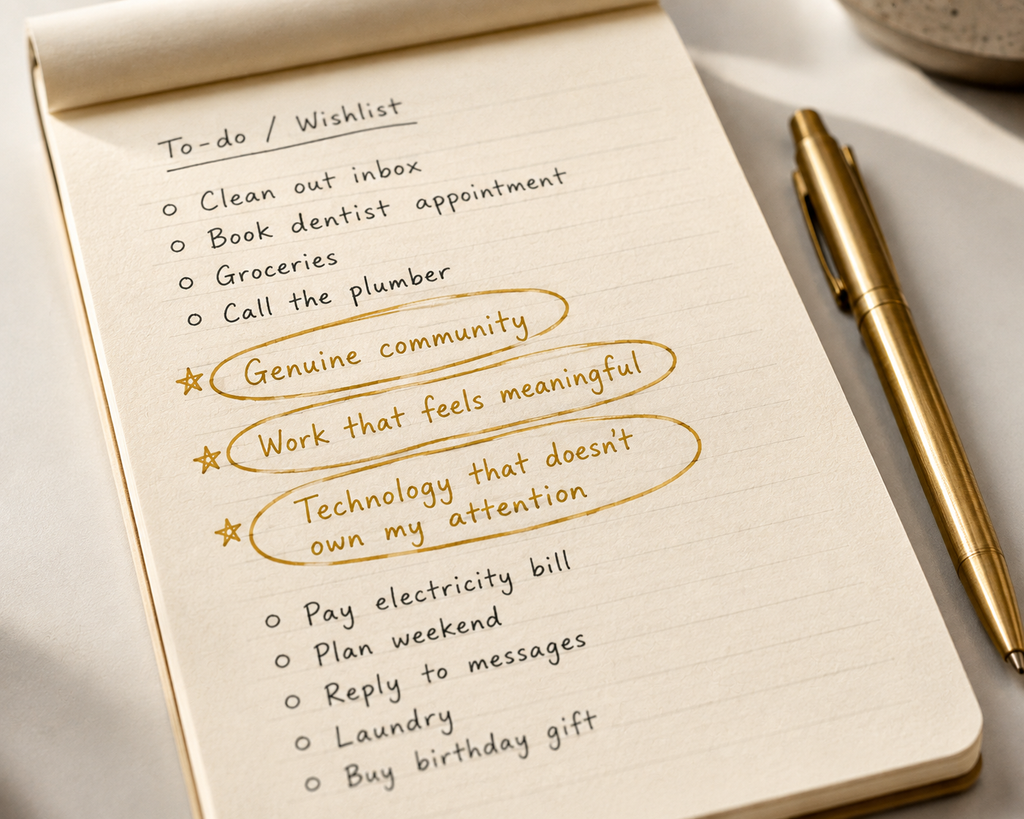 To-do / Wishlist
Clean out inbox
Book dentist appointment
Groceries
Call the plumber
Genuine community
Work that feels meaningful
Technology that doesn't
own my attention
Pay electricity bill
Plan weekend
Reply to messages
Laundry
Buy birthday gift